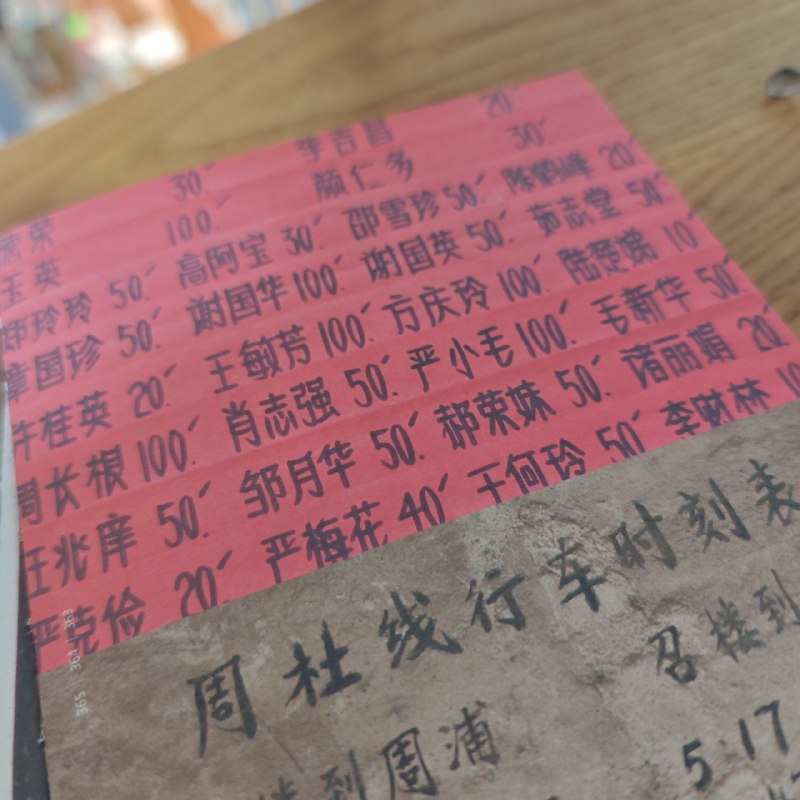 李吉昌 20
荣 30 颜仁多 30
玉英 100 邵雪珍 50 20
郑玲玲 50 高阿宝 30 谢国英 50 茹志堂 50
章国珍 50 谢国华 100 方庆玲 100 陆楚娣 10
许桂英 20 王敏芳 100 严小毛 100 毛新华 50
周长根 100 肖志强 50 郝荣妹 50 诸丽娟 20
汪兆庠 50 邹月华 50 于何玲 50 李财林 10
严克俭 20 严梅花 40
周杜线行车时刻表
楼到周浦 召楼到
5:17
363
364
365